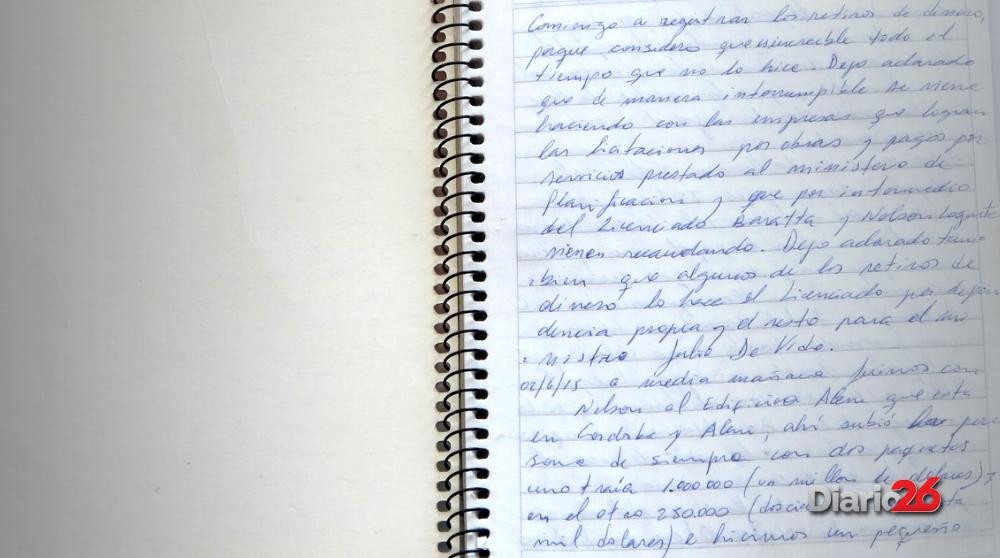 Comienzo a registrar los retiros de dinero,
porque considero que es increible todo el
tiempo que no lo hice. Dejo aclarado
que de manera interrumpible se viene
haciendo con las empresas que logran
las licitaciones por obras y pagos por
servicios prestado al ministerio de
Planificacion y que por intermedio
del Licenciado Baratta y Nelson Lazarte
vienen recaudando. Dejo aclarado tam
bien que algunos de los retiros de
dinero lo hace el Licenciado por depen
dencia propia y el resto para el mi
nistro Julio De Vido.
02/6/15 a media mañana fuimos con
Nelson al Edificio Alem que esta
en Cordoba y Alem, ahi subió la per
sona de siempre con dos paquetes
uno traía 1.000.000 (un millon de dolares) y
en el otro 250.000
mil dolares) e hicimos un pequeño
Diario26